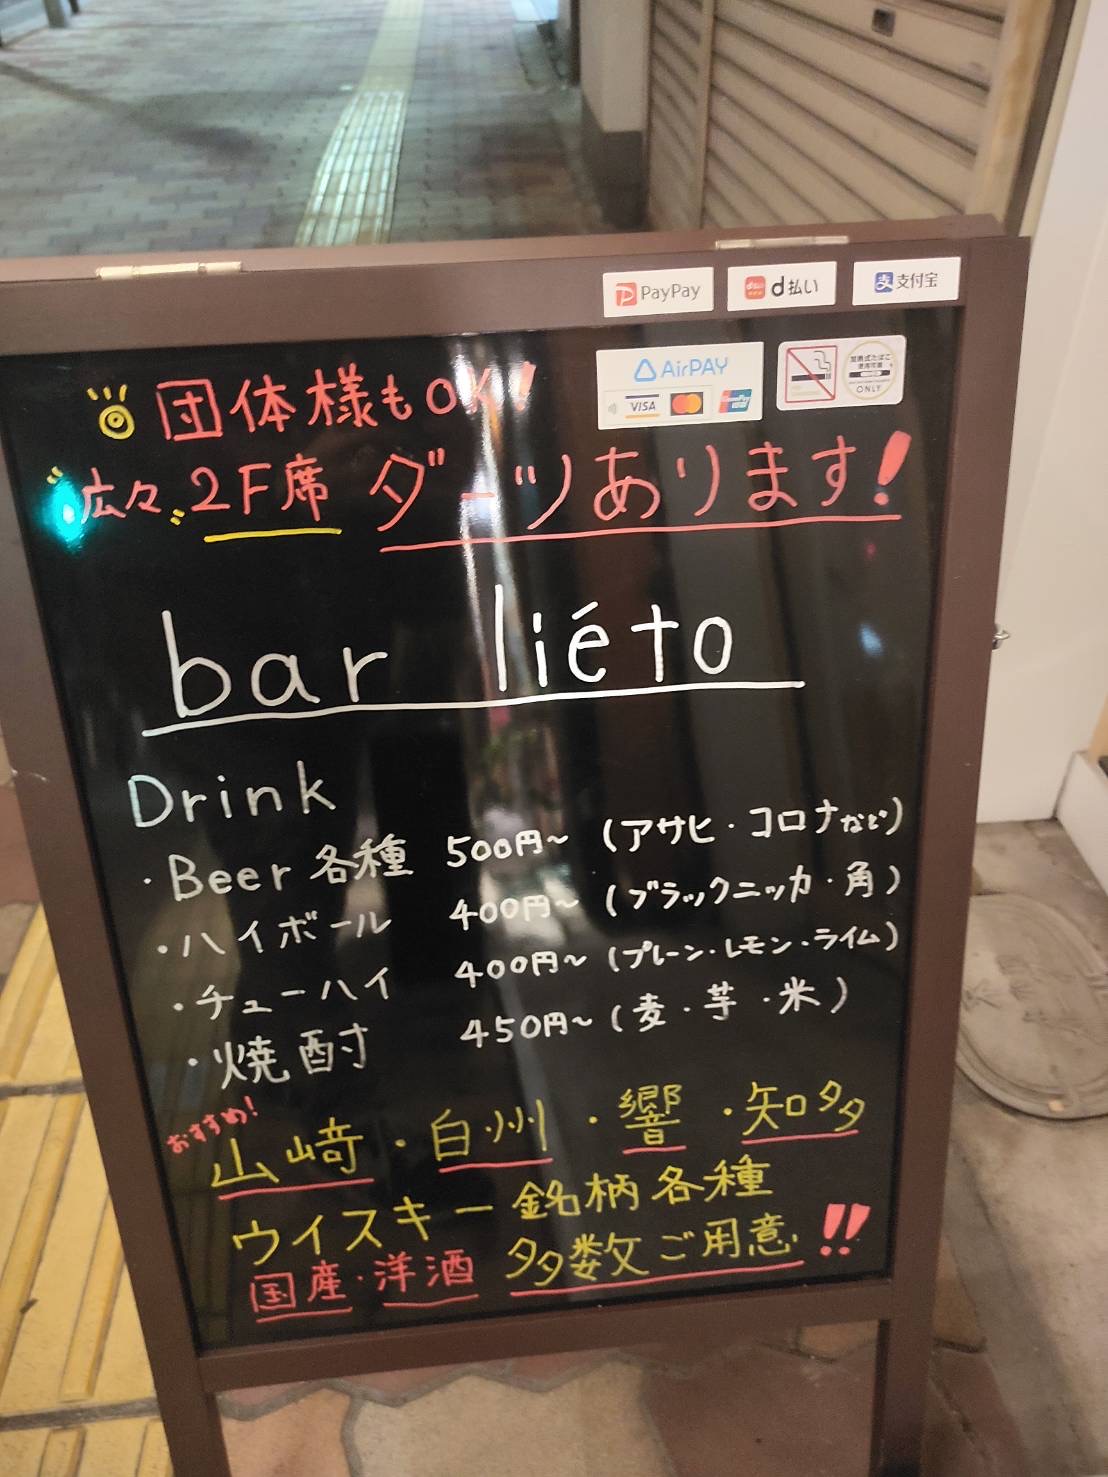 PayPay d払い 支付宝
AirPAY
VISA
加熱式たばこ
使用可能
ONLY
団体様もOK!
広々 2F席 ダーツあります!
bar liéto
Drink
・Beer 各種 500円〜 (アサヒ・コロナなど)
・ハイボール 400円〜 (ブラックニッカ・角)
・チューハイ 400円〜 (プレーン・レモン・ライム)
・焼酎 450円〜 (麦・芋・米)
おすすめ!
山崎・白州・響・知多
ウイスキー銘柄各種
国産・洋酒 多数ご用意!!